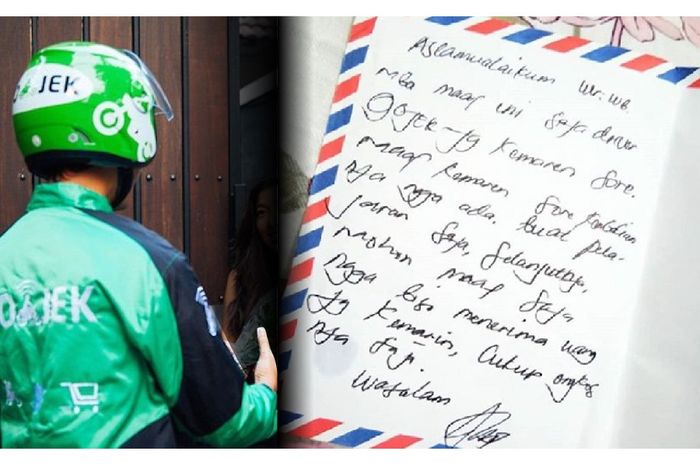 GOJEK
OJEK
Assamualaikum Wr. Wb.
Mba maaf ini saya driver
Gojek yg kemaren sore.
maaf kemaren sore kembalian
nya ngga ada. buat pela-
jaran saya, selanjutnya,
mohon maaf saya
ngga bisa menerima uang
yg kemarin, cukup ongkos
nya saja.
Wasalam